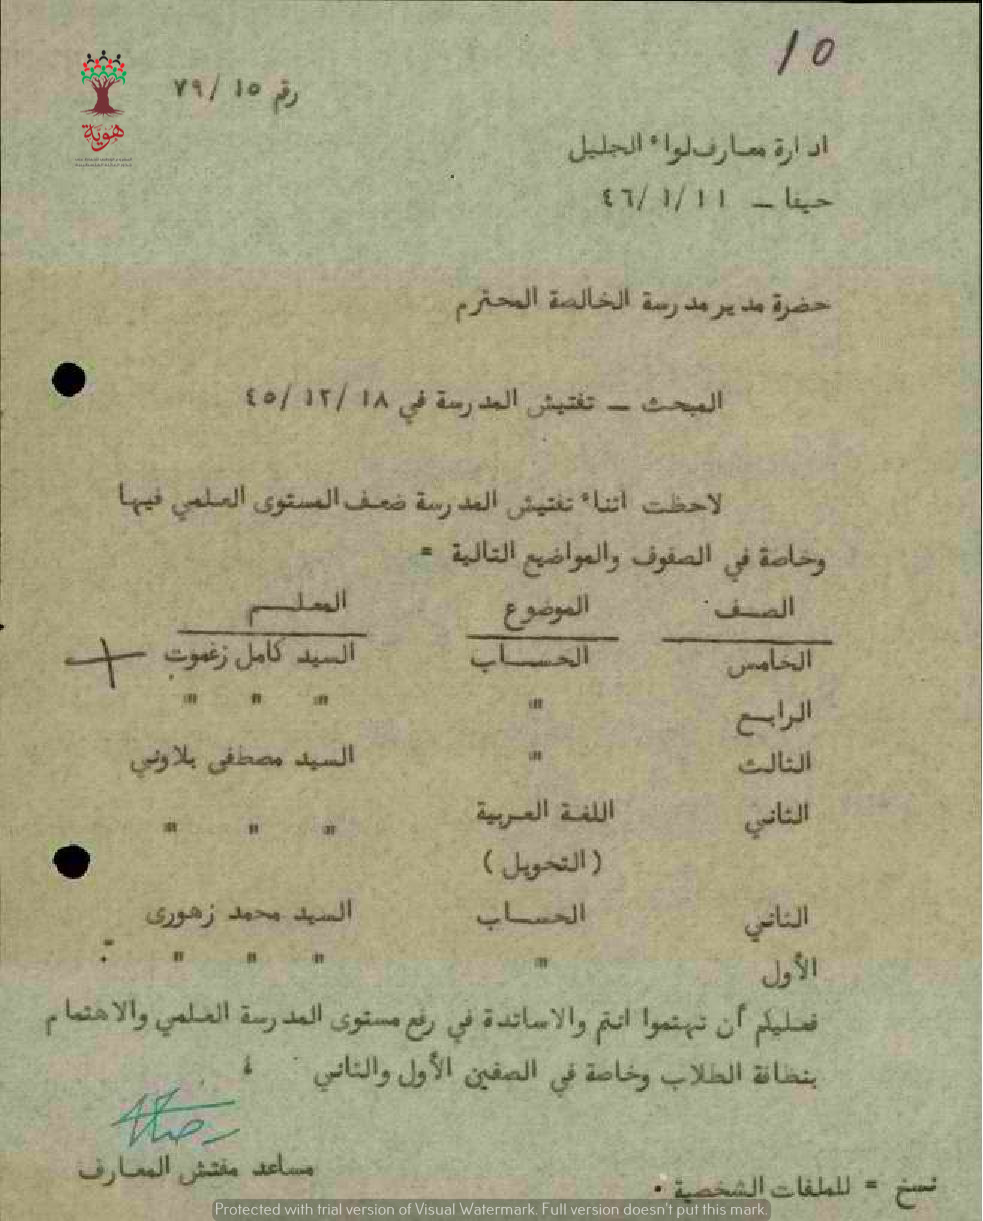 10
هوية
رقم ١٥ /٧٩
ادارة معارف لواء الجليل
حيفا ـ ١١ /١/ ٤٦
حضرة مدير مدرسة الخالصة المحترم
المبحث ـ تفتيش المدرسة في ١٨ /١٢/ ٤٥
لاحظت اثناء تفتيش المدرسة ضعف المستوى العلمي فيها
وخاصة في الصفوف والمواضيع التالية =
الصف الموضوع المعلم
الخامس الحساب السيد كامل زغموت
الرابع " " " "
الثالث " السيد مصطفى بلاوني
الثاني اللغة العربية " " "
(التحويل)
الثاني الحساب السيد محمد زهورى
الأول " " " "
فعليكم أن تهتموا انتم والاساتذة في رفع مستوى المدرسة العلمي والاهتمام
بنظافة الطلاب وخاصة في الصفين الأول والثاني
مساعد مفتش المعارف
نسخ = للملفات الشخصية .
Protected with trial version of Visual Watermark. Full version doesn't put this mark.